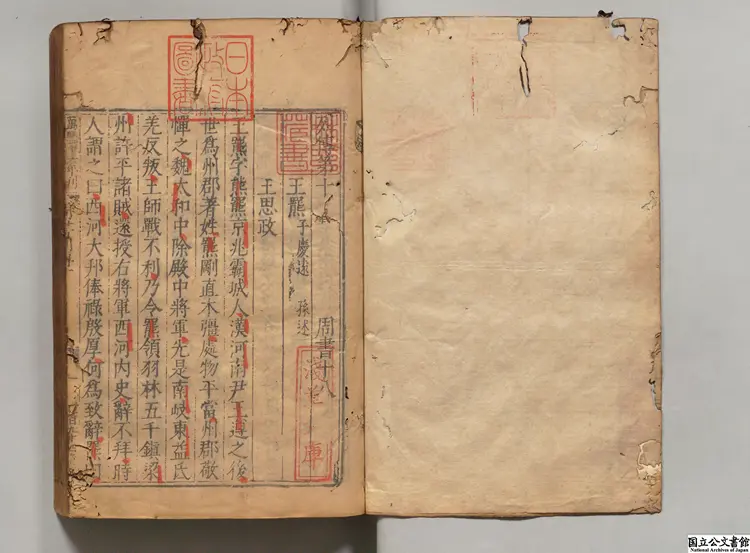 日本政府圖書
第十
周書十八
王羆 子慶遠 孫述
王思政
王羆字熊羆京兆霸城人漢河南尹王遵之後
世爲州郡著姓羆剛直木彊處物平當州郡敬
憚之魏太和中除殿中將軍先是南岐東益氐
羌反叛王師戰不利乃令羆領羽林五千鎮梁
州討平諸賊還授右將軍西河内史辭不拜時
人謂之曰西河大邦俸祿殷厚何爲致辭羆曰
国立公文書館
National Archives of Japan